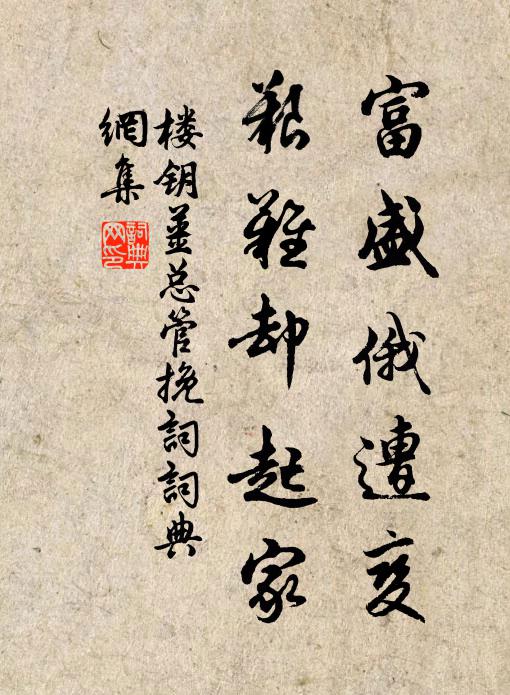 富盛俄遭变
艰难却起家
楼钥姜总管挽词词典
網集
詞典網印